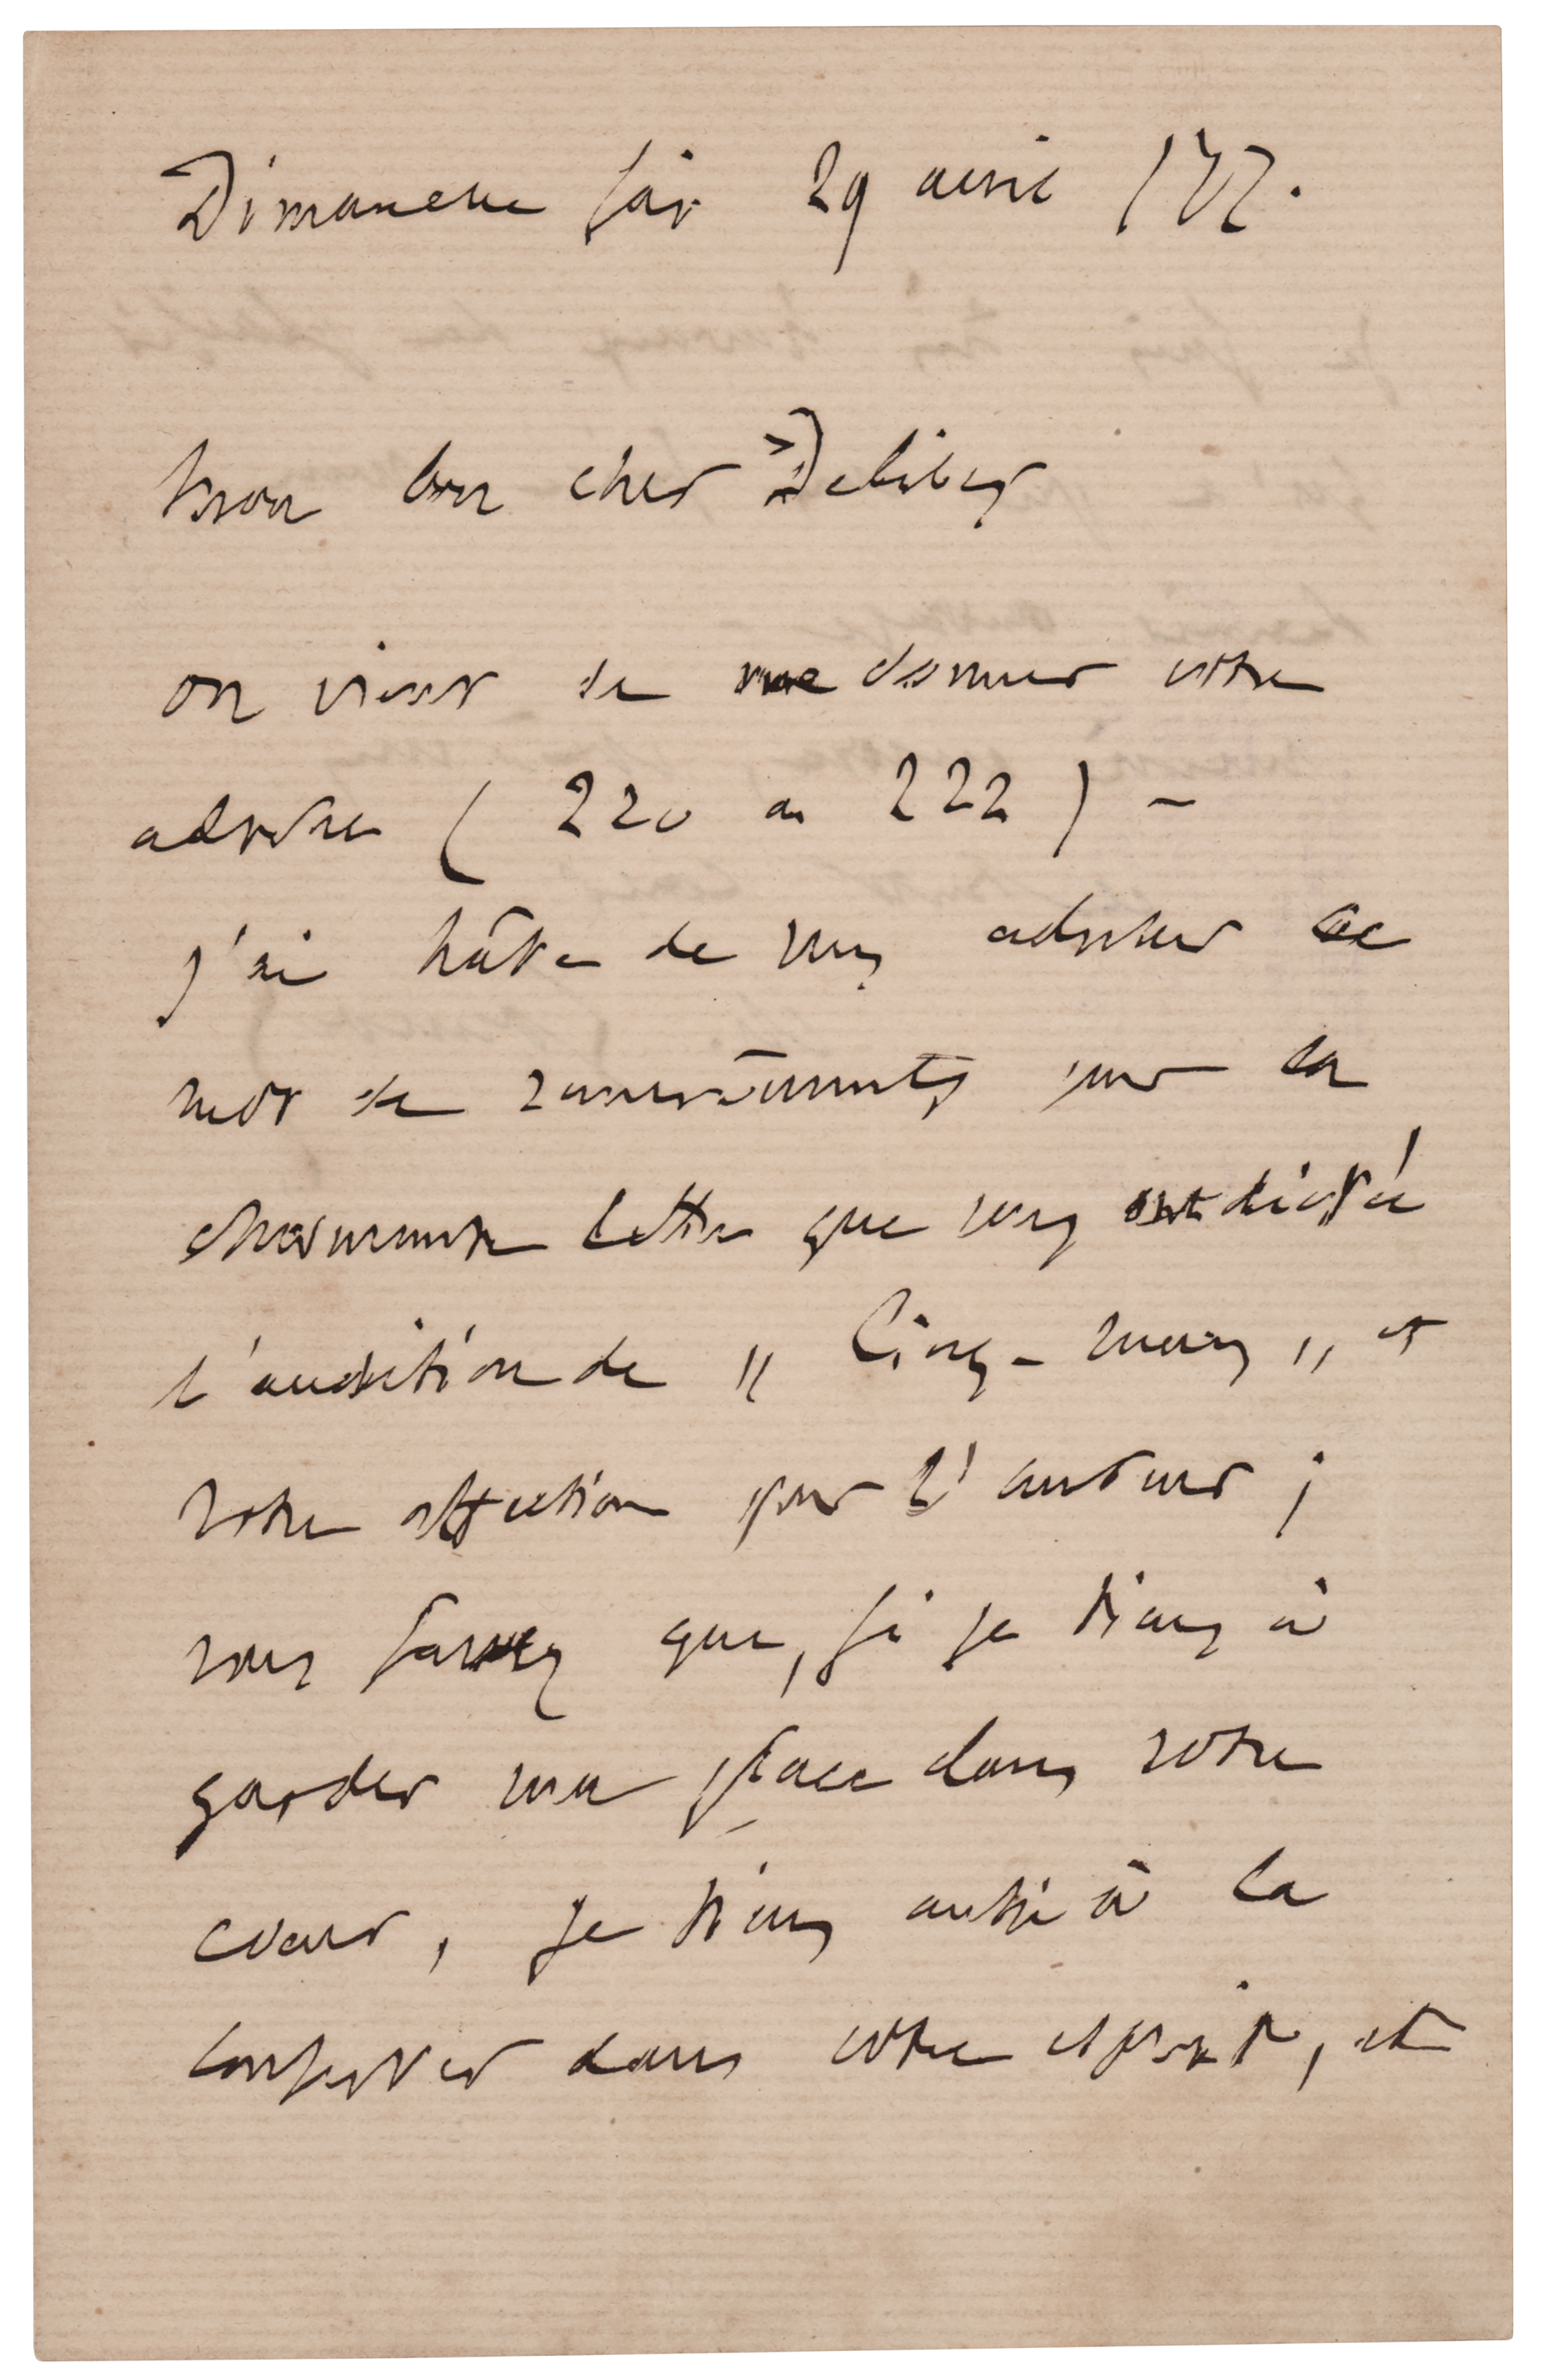 Dimanche soir 29 avril /77.
Mon bon cher Delibes
on vient de me donner votre
adresse ( 220 ou 222 ) –
j'ai hâte de vous adresser ce
mot de remerciements pour la
charmante lettre que vous ont dictée
l'audition de „ Cinq-Mars „ et
votre affection pour l'auteur ;
vous savez que, si je tiens à
garder ma place dans votre
cœur, je tiens aussi à la
conserver dans votre esprit, et